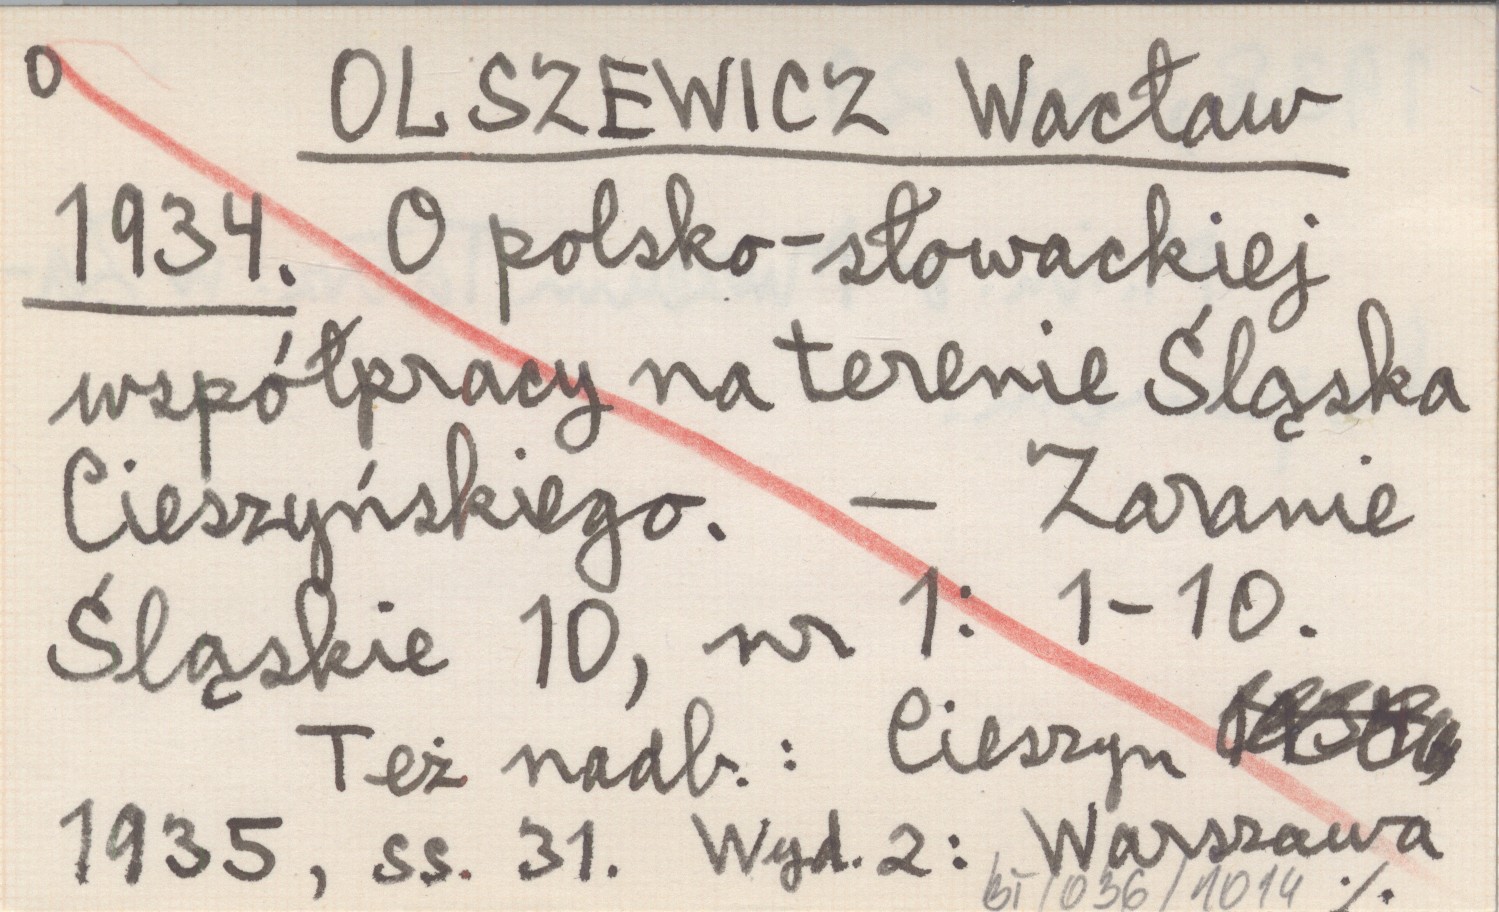 O OLSZEWICZ Wacław
1934. O polsko-słowackiej
współpracy na terenie Śląska
Cieszyńskiego. — Zaranie
Śląskie 10, nr 1: 1-10.
Też nadb.: Cieszyn
1935, ss. 31. Wyd. 2: Warszawa
BI/036/1014 ./.